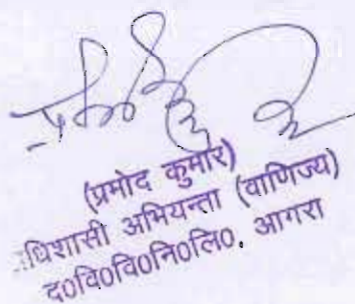 (प्रमोद कुमार)
धिशासी अभियन्ता (वाणिज्य)
द०वि०वि०नि०लि०, आगरा